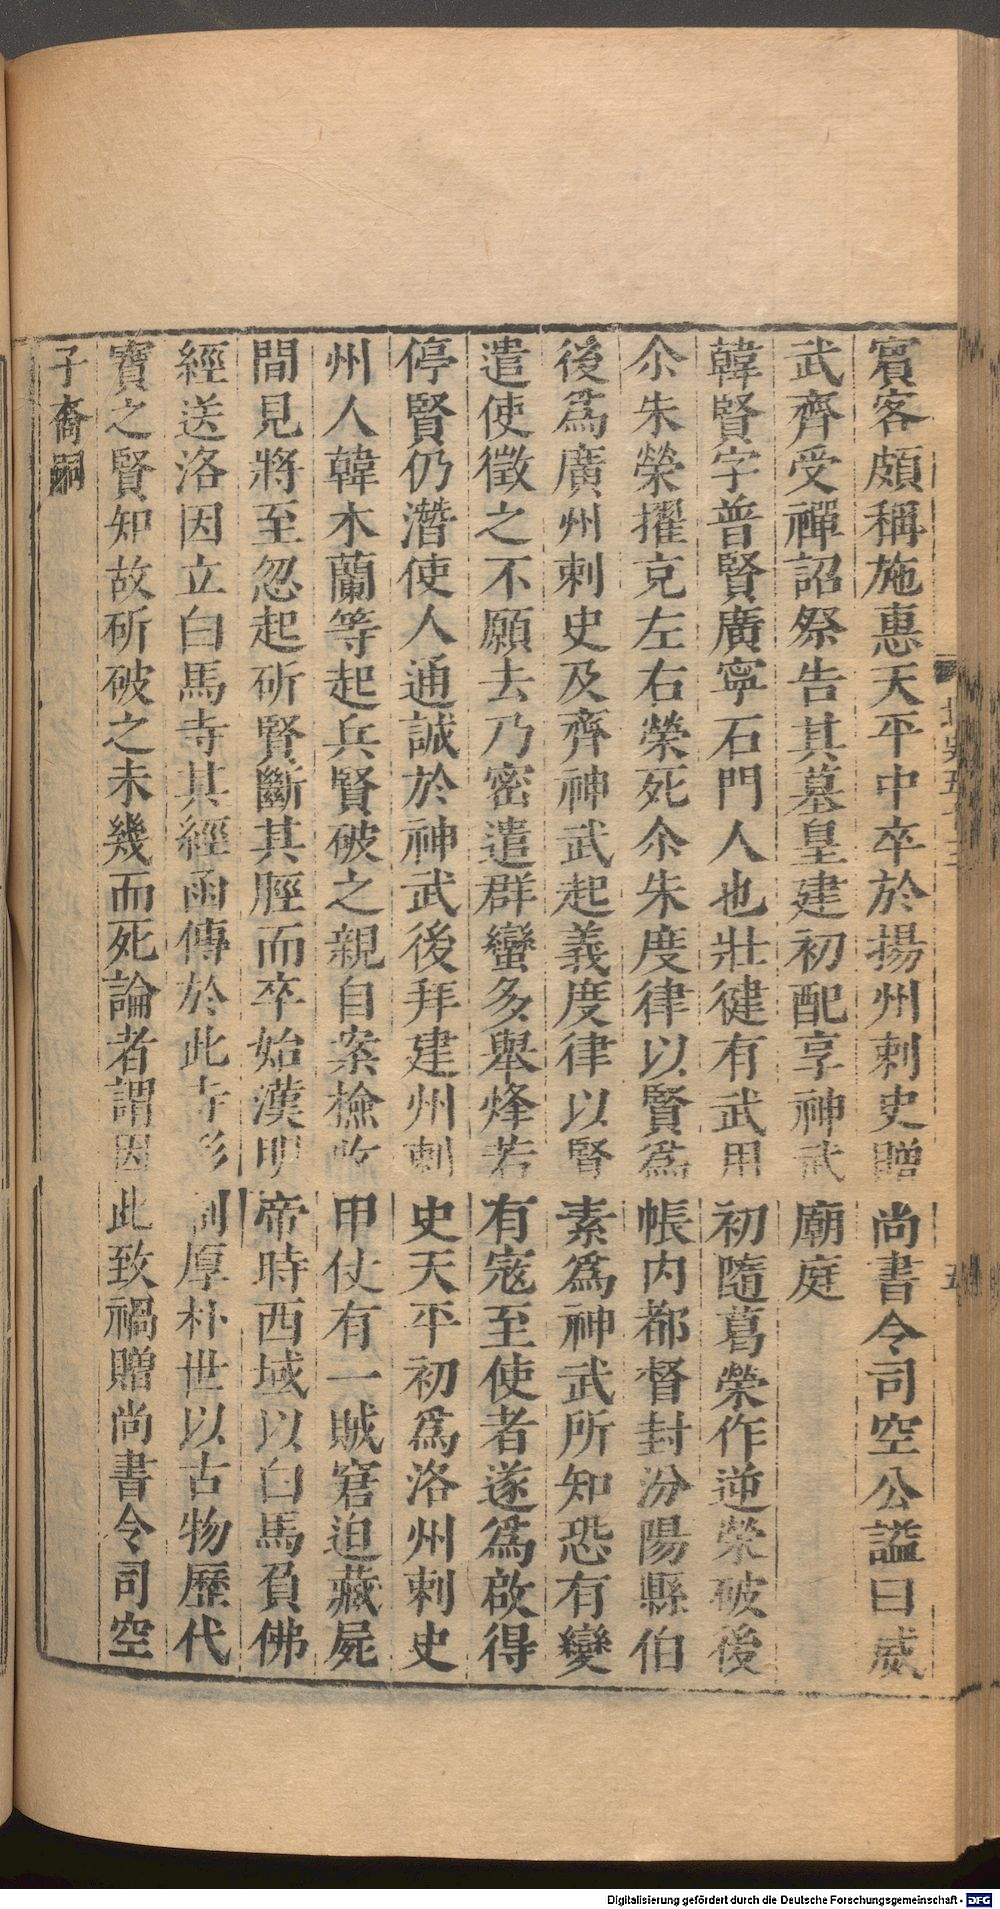 賓客頗稱施惠天平中卒於揚州刺史贈尚書令司空公謚曰威
武齊受禪詔祭告其墓皇建初配享神武廟庭
韓賢字普賢廣寧石門人也壯健有武用初隨葛榮作逆榮破後
尒朱榮擢充左右榮死尒朱度律以賢爲帳内都督封汾陽縣伯
後爲廣州刺史及齊神武起義度律以賢素爲神武所知恐有變
遣使徵之不願去乃密遣群蠻多舉烽若有寇至使者遂爲啟得
停賢仍潛使人通誠於神武後拜建州刺史天平初爲洛州刺史
州人韓木蘭等起兵賢破之親自案檢收甲仗有一賊窘迫藏屍
間見將至忽起斫賢斷其脛而卒始漢明帝時西域以白馬負佛
經送洛因立白馬寺其經函傳於此寺形制厚朴世以古物歷代
寶之賢知故斫破之未幾而死論者謂因此致禍贈尚書令司空
子裔嗣
北史五十三
五
Digitalisierung gefördert durch die Deutsche Forschungsgemeinschaft - DFG